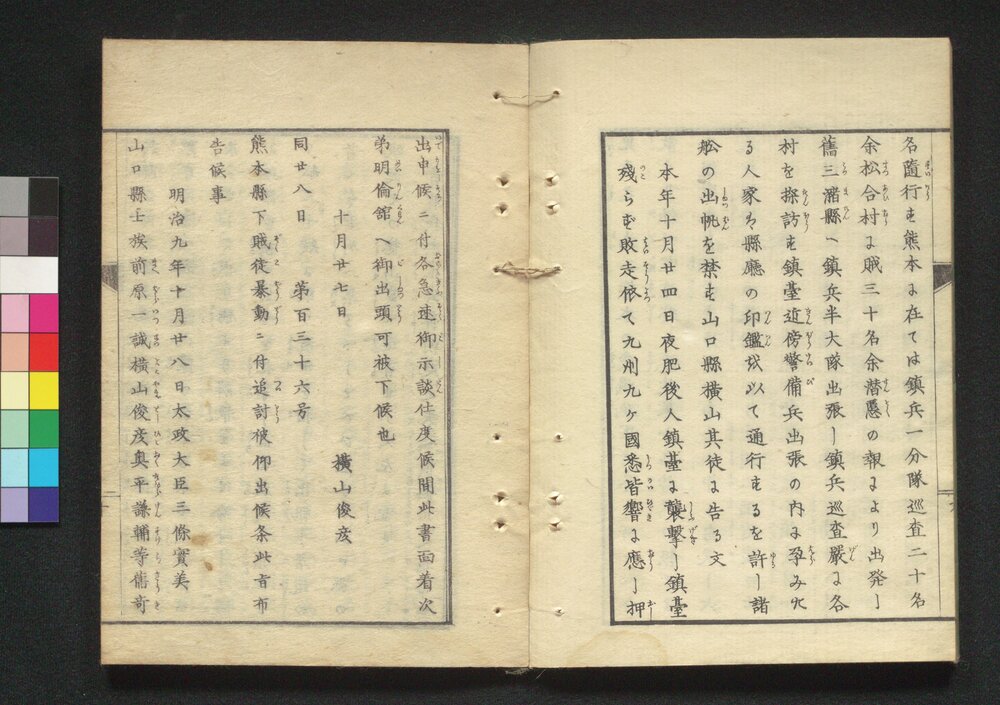 名隨行す熊本に在ては鎮兵一分隊巡査二十名
余松合村に賊三十名余潜慝の報により出発し
舊三瀦縣へ鎮兵半大隊出張し鎮兵巡査嚴に各
村を探訪す鎮臺近傍警備兵出張の内に孕みた
る人家は縣廳の印鑑を以て通行するを許し諸
舩の出帆を禁す山口縣横山其徒に告る文
本年十月廿四日夜肥後人鎮臺に襲撃し鎮臺
殘らず敗走依て九州九ヶ國悉皆響に應し押
出申候ニ付各急速御示談仕度候間此書面着次
弟明倫舘へ御出頭可被下候也
十月廿七日　横山俊彦
同廿八日　第百三十六号
熊本縣下賊徒暴動ニ付追討被仰出候条此旨布
告候事
明治九年十月廿八日太政大臣三條實美
山口縣士族前原一誠横山俊彦奥平謙輔等舊奇